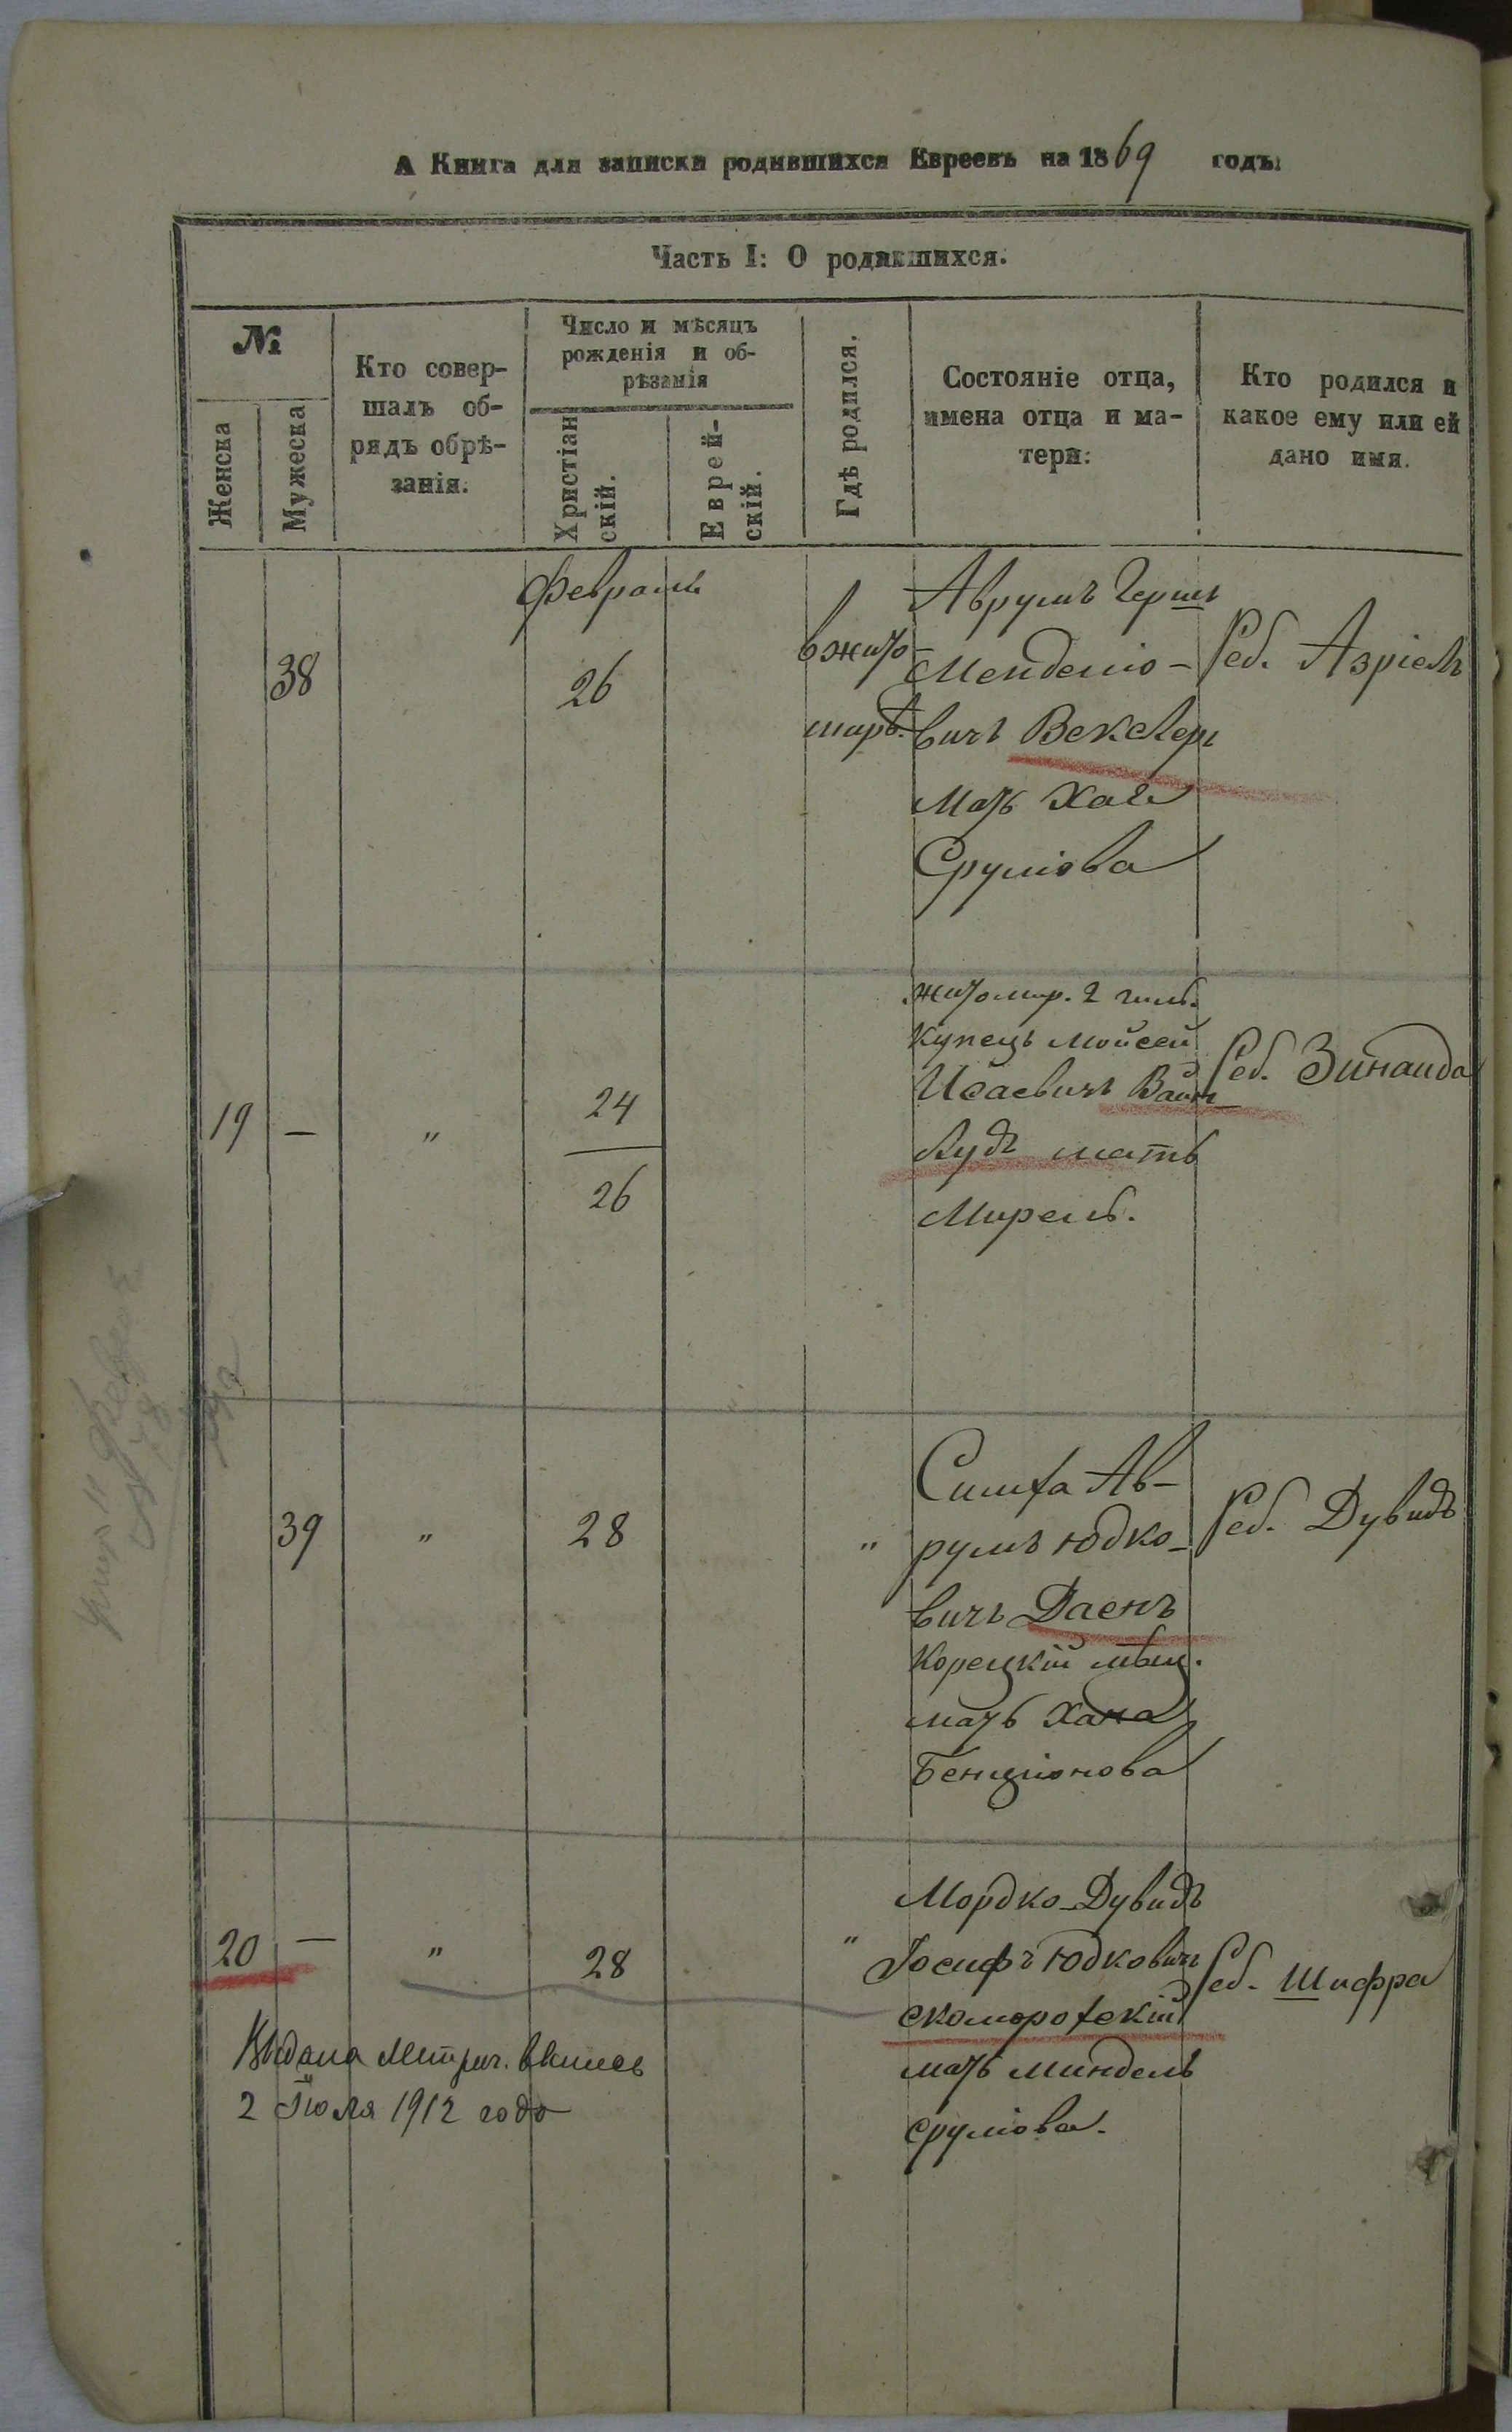 А Книга для записки родившихся Евреевъ на 1869 годъ:
Часть I: О родившихся.
№
Женска
Мужеска
Кто совер-
шалъ об-
рядъ обрѣ-
занія.
Число и мѣсяцъ
рожденія и об-
рѣзанія
Христіан
скій.
Еврей-
скій.
Гдѣ родился.
Состояніе отца,
имена отца и ма-
тери:
Кто родился и
какое ему или ей
дано имя.
Февраля
38
26
в жито-
мирѣ.
Аврумъ Герш
Менделіо-
вичъ Векслеръ
мать Хая
Сруліова
Реб. Азріель
19 — "
24
26
житомир. 2 гиль.
купецъ Мойсей
Исаевичъ Вайн
лудъ мать
Мирель.
Реб. Зинаида
39 " 28 "
Симха Ав-
румъ Юдко-
вичъ Даенъ
Корецкій мѣщ.
мать Хана
Бенціонова
Реб. Дувидъ
20 — " 28 "
Мордко-Дувидъ
Іосифъ Юдковичъ
Скоморохскій
мать Миндель
Сруліова.
Реб. Шифра
Выдана Метрич. выпись
2 Іюля 1912 года